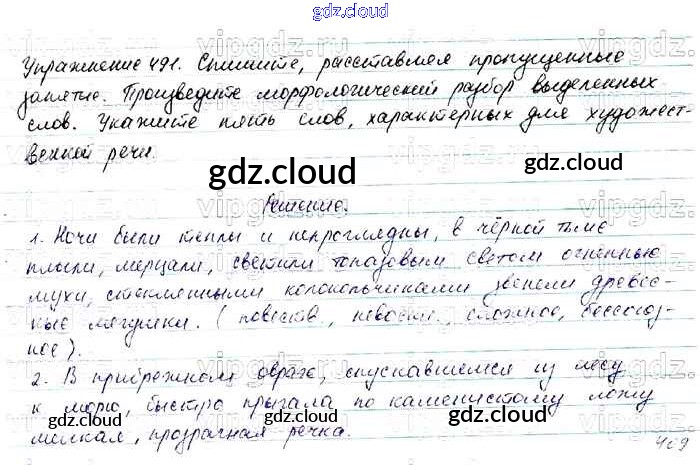 gdz.cloud
Упражнение 491. Спишите, расставляя пропущенные
запятые. Произведите морфологический разбор выделенных
слов. Укажите пять слов, характерных для художест-
венной речи.
gdz.cloud
gdz.cloud
Решение.
1. Ночи были теплы и непроглядны, в чёрной тьме
плыли, мерцали, светили топазовым светом огненные
мухи, стеклянными колокольчиками звенели древес-
ные лягушки. (повеств., невоскл., сложное, бессоюз-
ное).
2. В прибрежном овраге, спускавшемся из лесу
к морю, быстро прыгала по каменистому ложу
мелкая, прозрачная речка.
gdz.cloud gdz.cloud gdz.cloud
469